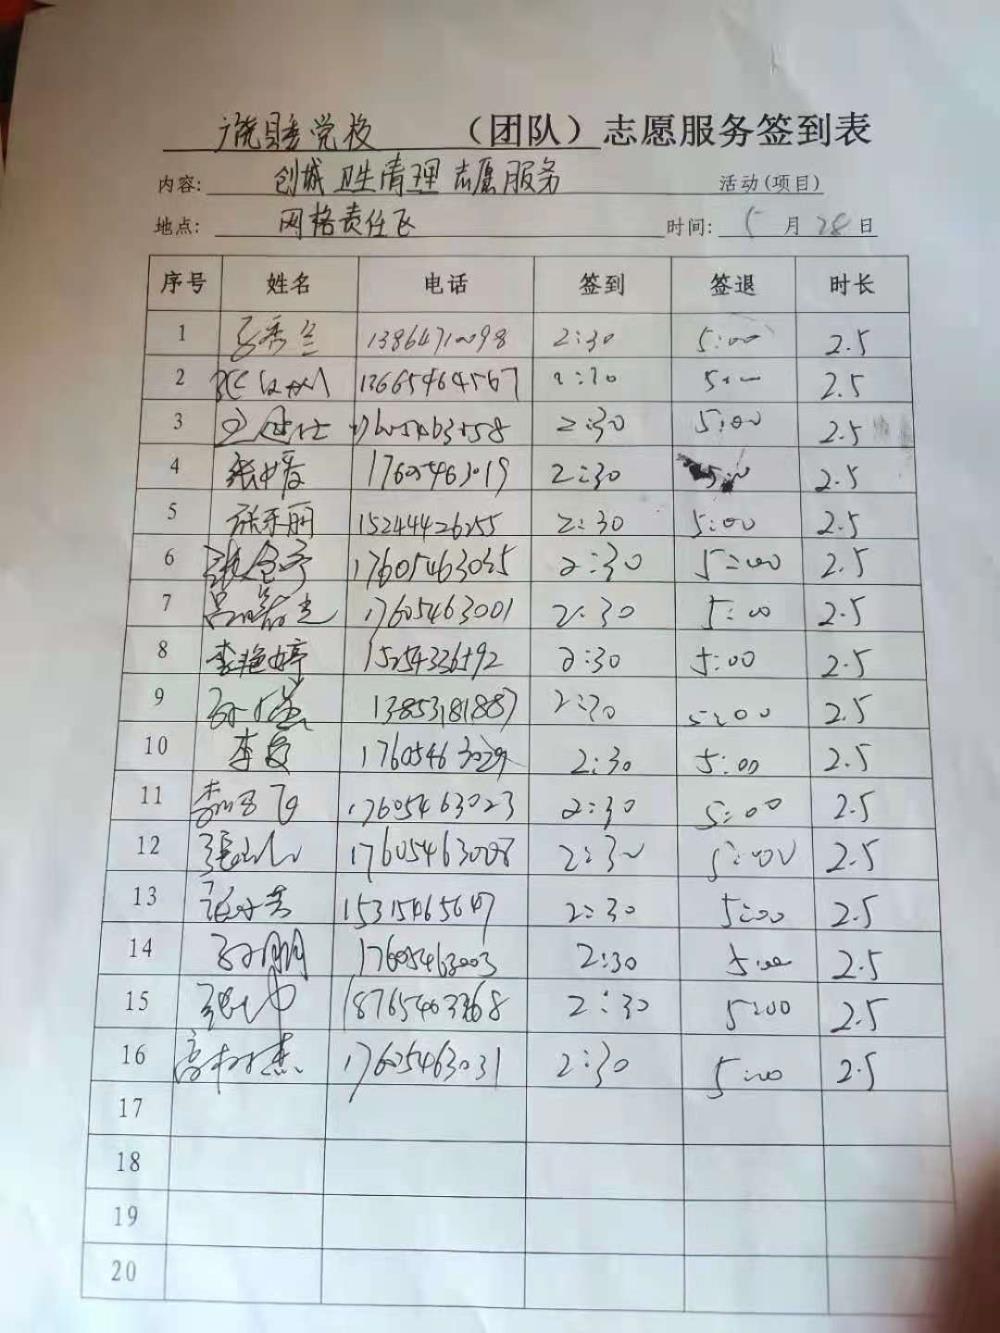 饶县委党校 （团队）志愿服务签到表
内容: 创城卫生清理志愿服务 活动(项目)
地点: 网格责任区 时间: 5 月 28 日
序号 姓名 电话 签到 签退 时长
1 秀兰 2:30 5:00 2.5
2 13665464567 2:30 5:00 2.5
3 2:30 5:00 2.5
4 张中媛 17605463019 2:30 5:00 2.5
5 丽 15244426255 2:30 5:00 2.5
6 张 17605463035 2:30 5:00 2.5
7 吕 17605463001 2:30 5:00 2.5
8 李艳婷 15254326592 2:30 5:00 2.5
9 孙 13853181887 2:30 5:00 2.5
10 李 2:30 5:00 2.5
11 17605463023 2:30 5:00 2.5
12 张 17605463008 2:30 5:00 2.5
13 张 15315465647 2:30 5:00 2.5
14 孙鹏 17605463003 2:30 5:00 2.5
15 张 18765463368 2:30 5:00 2.5
16 高 杰 17605463031 2:30 5:00 2.5
17
18
19
20